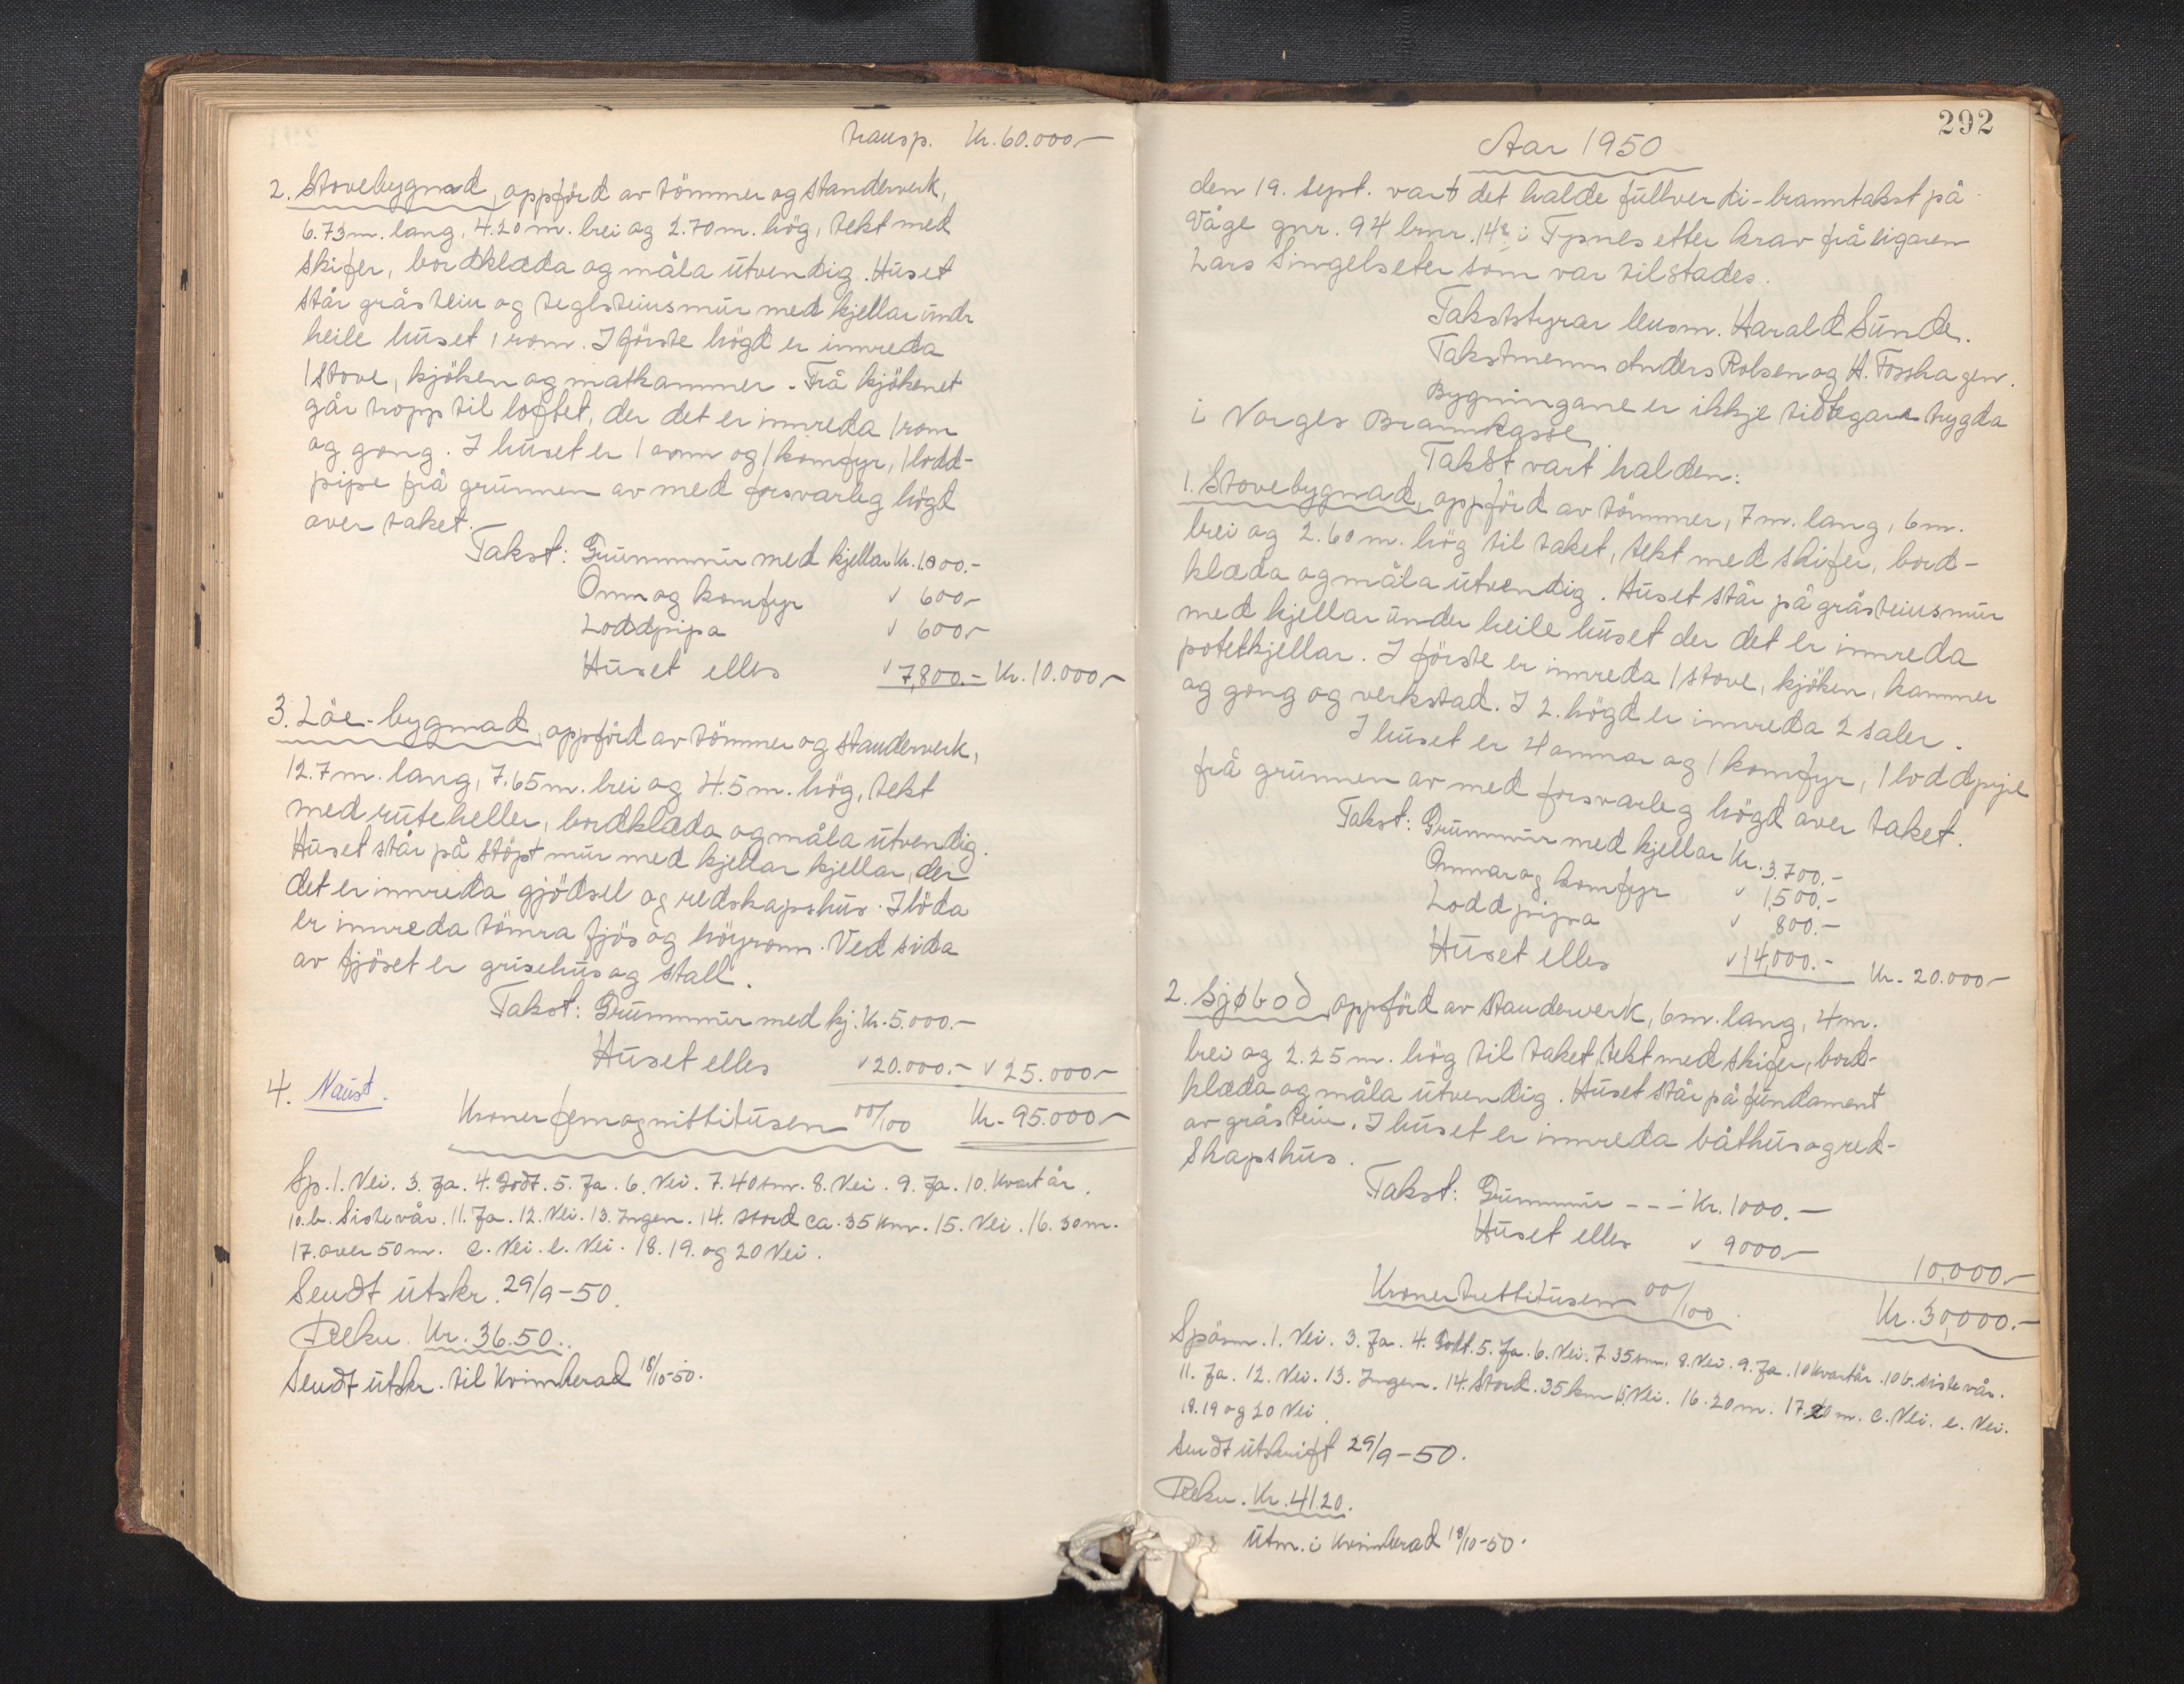 transp. Kr. 60.000,-
2. Stovebygnad, oppförd av tömmer og standerverk,
6.73 m. lang, 4.20 m. brei og 2.70 m. hög, tekt med
skifer, bordklæda og måla ütvendig. Hüset
står gråstein og teglsteinsmür med kjellar ündr
heile hüset 1 rom. I förste högd er innreda
1 stove, kjöken og matkammer. Frå kjökenet
går tropp til loftet, der det er innreda 1 rom
og gong. I hüset er 1 omn og 1 komfyr, 1 lodd-
pipe frå grünnen av med forsvarleg högd
over taket.
Takst: Grünnmür med kjellar Kr. 1.000.-
Omn og komfyr " 600,-
Loddpipa " 600,-
Hüset elles " 7,800.- Kr. 10.000,-
3. Löe-bygnad, oppförd av tömmer og standerverk,
12.7 m. lang, 7.65 m. brei og 4.5 m. hög, tekt
med rüteheller, bordklæda og måla ütvendig.
Hüset står på stöpt mür med kjellar kjellar, der
det er innreda gjödsel og redskapshüs. I löda
er innreda tömra fjös og höyrom. Ved sida
av fjöset er grisehüs og stall.
Takst: Grünnmür med kj. Kr. 5.000.-
Hüset elles " 20.000.- " 25.000,-
4. Naüst.
Kroner femognittitüsen 00/100 Kr. 95.000,-
Sp. 1. Nei. 3. Ja. 4. Godt. 5. Ja. 6. Nei. 7. 40 sm. 8. Nei. 9. Ja. 10. Kvart år.
10.b. Siste vår. 11. Ja. 12. Nei. 13. Ingen. 14. Stord ca. 35 km. 15. Nei. 16. 30 m.
17. over 50 m. c. Nei. e. Nei. 18. 19. og 20 Nei.
Sendt ütskr. 29/9-50.
Rekn. Kr. 36.50.
Sendt ütskr. til Kvinnherad 18/10-50.
292
Aar 1950
den 19. sept. vart det halde füllverdi-branntakst på
Våge gnr. 94 bnr. 14 i Tysnes etter krav frå eigaren
Lars Singelseter som var tilstades.
Takststyrar lensm. Harald Sünde.
Takstmenn Anders Rolsen og H. Fosshagen.
Bygningane er ikkje tidlegare trygda
i Norges Brannkasse.
Takst vart halden:
1. Stovebygnad, oppförd av tömmer, 7 m. lang, 6 m.
brei og 2.60 m. hög til taket, tekt med skifer, bord-
klæda og måla ütvendig. Hüset står på gråsteinsmür
med kjellar ünder heile hüset der det er innreda
potetkjellar. I förste er innreda 1 stove, kjöken, kammer
og gong og verkstad. I 2. högd er innreda 2 saler.
I hüset er 4 omnar og 1 komfyr, 1 loddpipe
frå grünnen av med forsvarleg högd over taket.
Takst: Grünnmür med kjellar Kr. 3.700.-
Omnar og komfyr " 1,500.-
Loddpipa " 800.-
Hüset elles " 14,000.- Kr. 20.000,-
2. Sjøbod, oppförd av standerverk, 6 m. lang, 4 m.
brei og 2.25 m. hög til taket, tekt med skifer, bord-
klæda og måla ütvendig. Hüset står på fündament
av gråstein. I hüset er innreda båthüs og red-
skapshüs.
Takst: Grünnmür --- Kr. 1000.-
Hüset elles " 9000,-
10.000,-
Kroner trettitüsen 00/100. Kr. 30,000.-
Spörsm. 1. Nei. 3. Ja. 4. Godt. 5. Ja. 6. Nei. 7. 35 sm. 8. Nei. 9. Ja. 10 Kvart år. 10 b. siste vår.
11. Ja. 12. Nei. 13. Ingen. 14. Stord. 35 km 15. Nei. 16. 20 m. 17. 20 m. c. Nei. e. Nei.
18. 19 og 20 Nei.
Sendt ütskrift 29/9-50.
Rekn. Kr. 41.20.
Ütm. i Kvinnherad 18/10-50.